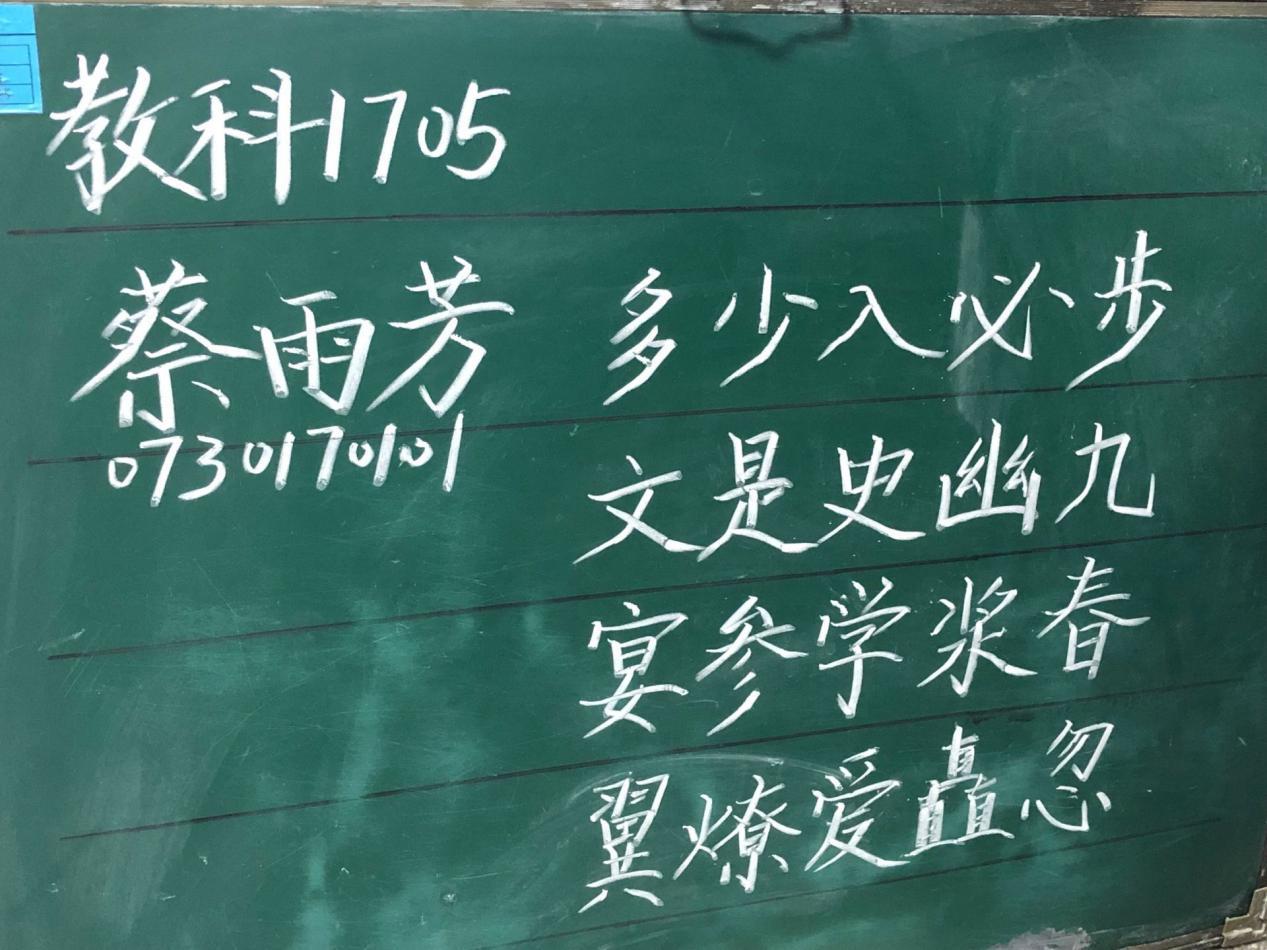 教科1705
蔡雨芳
0730170101
多少入必步
文是史幽九
宴参学浆春
翼燎爱矗忽